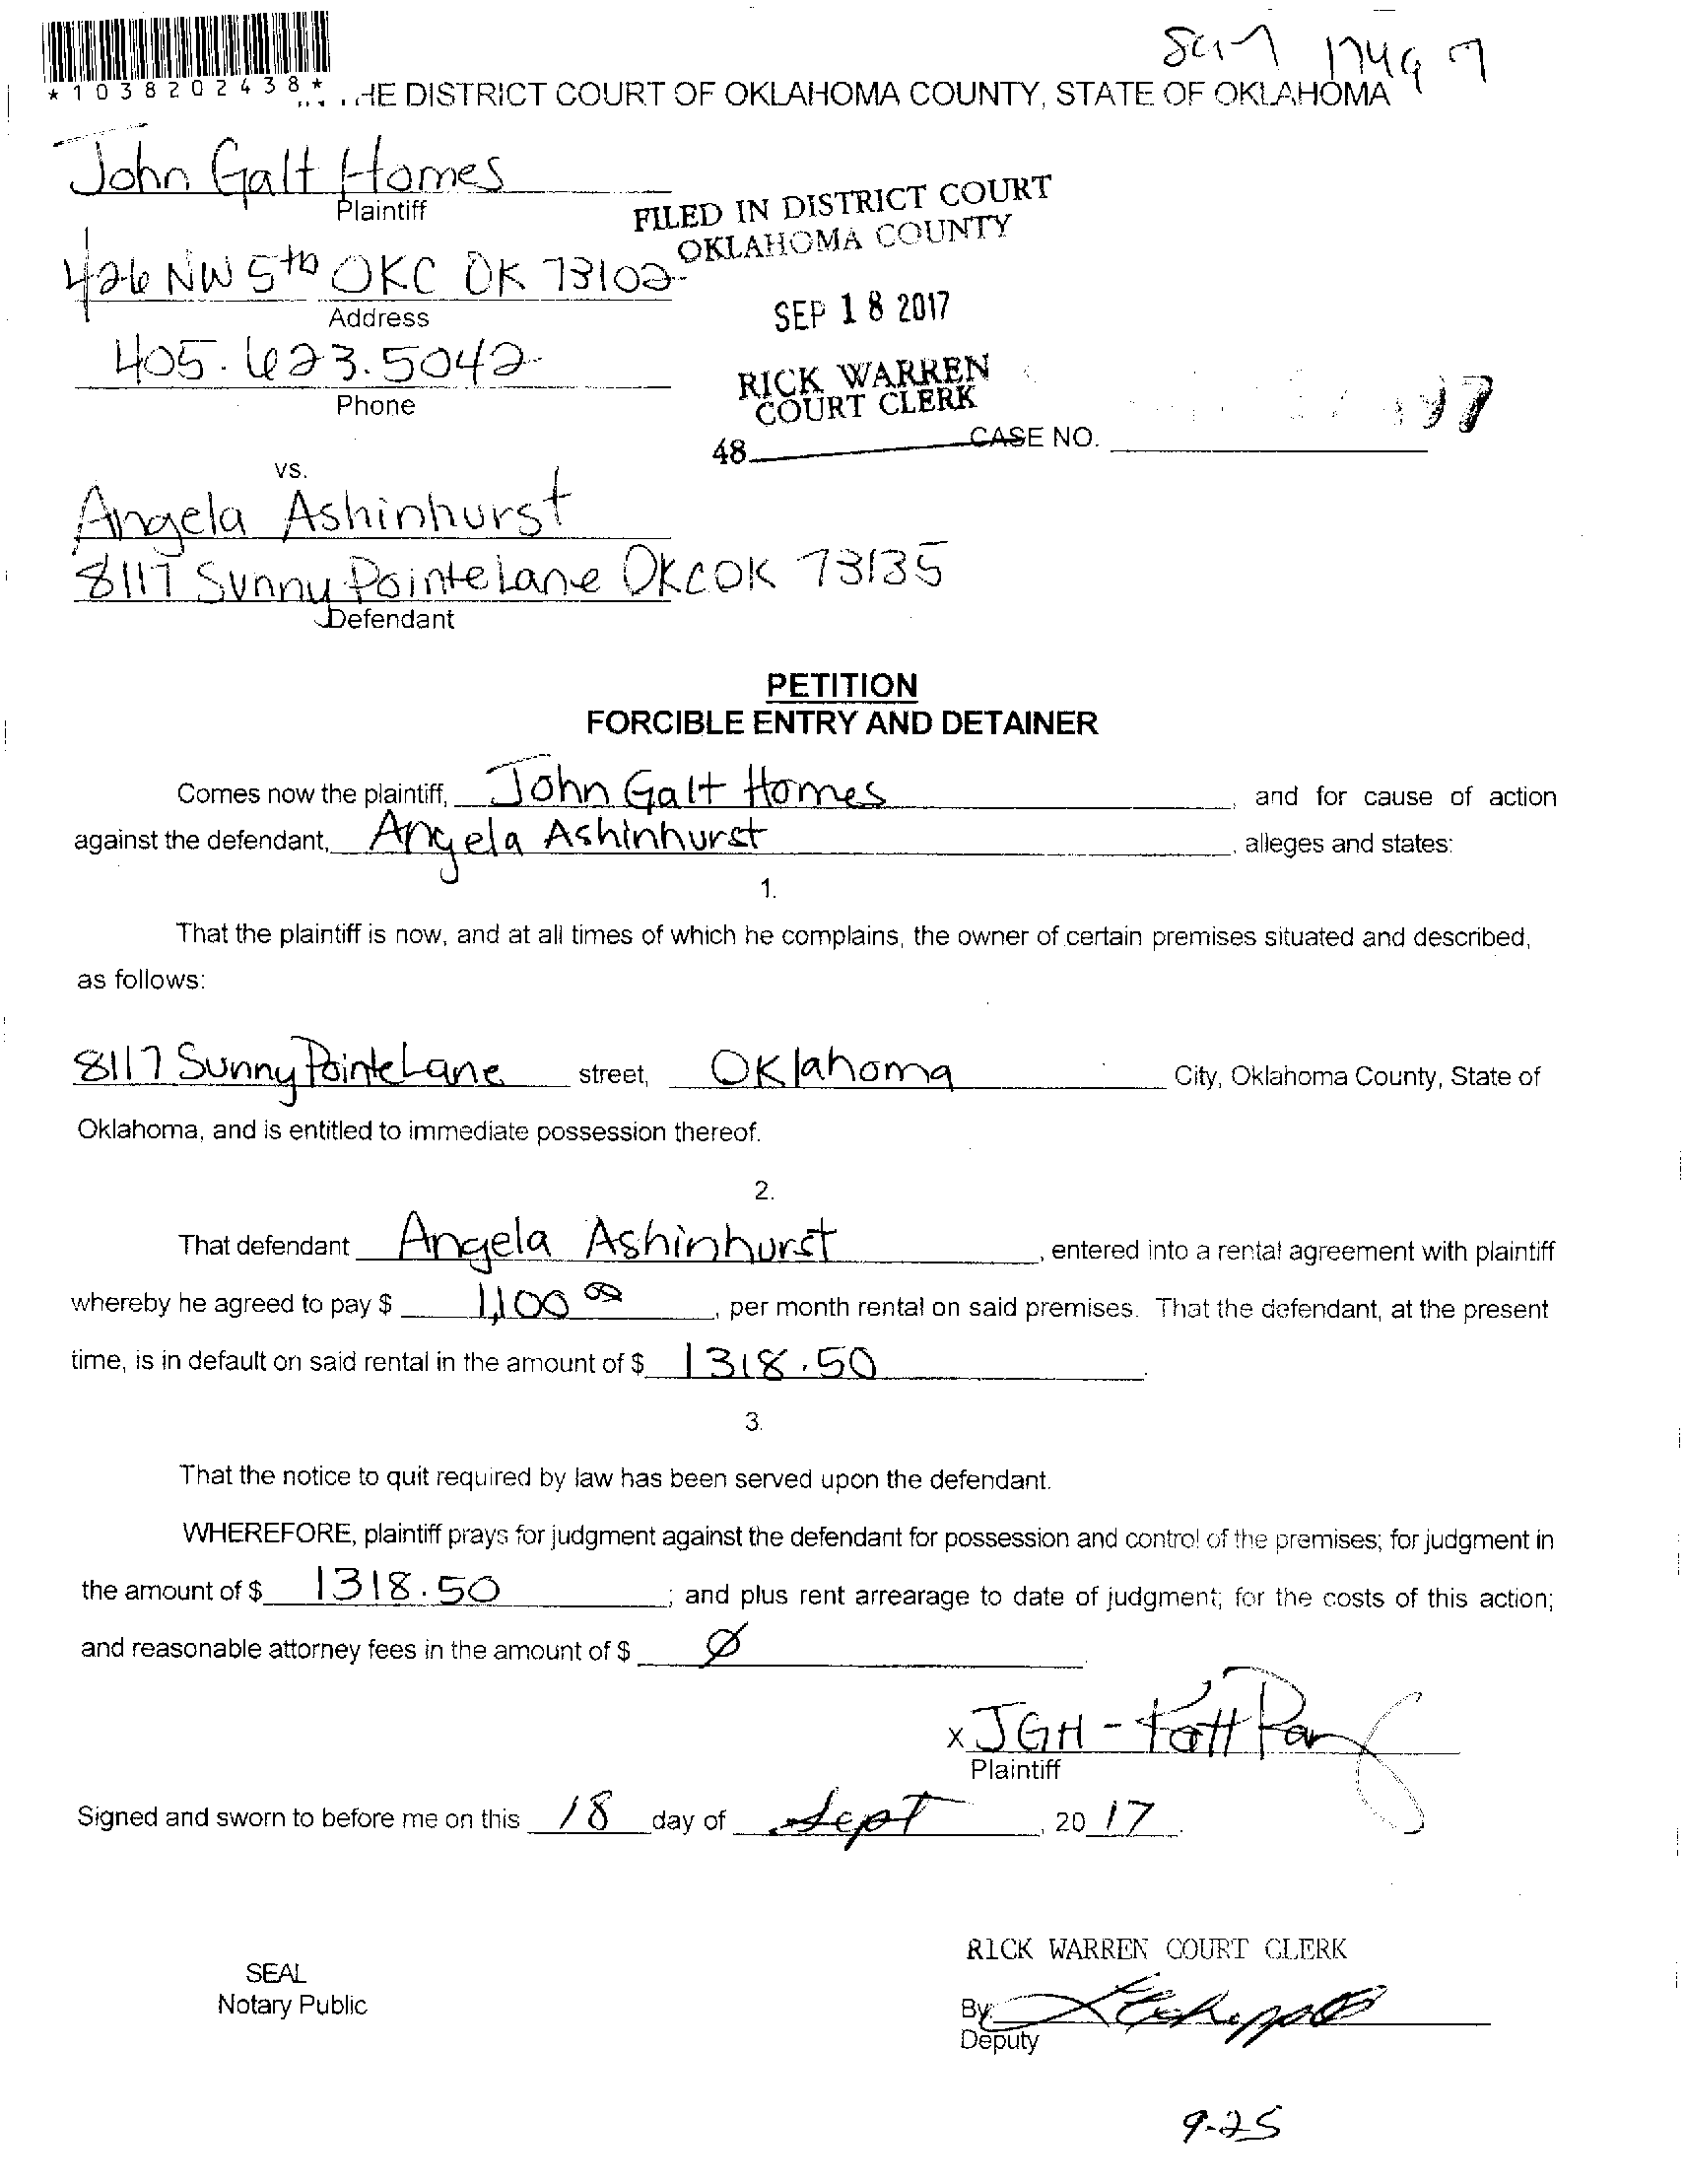 *1038202438*
HE DISTRICT COURT OF OKLAHOMA COUNTY, STATE OF OKLAHOMA
17497
John Galt Homes
Plaintiff
FILED IN DISTRICT COURT
OKLAHOMA COUNTY
426 NW 5th OKC OK 73102
Address
SEP 18 2017
405.623.5042
Phone
RICK WARREN
COURT CLERK
48 CASE NO.
vs.
Angela Ashinhurst
8117 Sunny Pointe Lane OKC OK 73135
Defendant
PETITION
FORCIBLE ENTRY AND DETAINER
Comes now the plaintiff, John Galt Homes and for cause of action
against the defendant, Angela Ashinhurst, alleges and states:
1.
That the plaintiff is now, and at all times of which he complains, the owner of certain premises situated and described,
as follows:
8117 Sunny Pointe Lane street, Oklahoma City, Oklahoma County, State of
Oklahoma, and is entitled to immediate possession thereof.
2.
That defendant Angela Ashinhurst, entered into a rental agreement with plaintiff
whereby he agreed to pay $ 1,100 00, per month rental on said premises. That the defendant, at the present
time, is in default on said rental in the amount of $ 1318.50.
3.
That the notice to quit required by law has been served upon the defendant.
WHEREFORE, plaintiff prays for judgment against the defendant for possession and control of the premises; for judgment in
the amount of $ 1318.50; and plus rent arrearage to date of judgment; for the costs of this action;
and reasonable attorney fees in the amount of $ Ø
x JGH -
Plaintiff
Signed and sworn to before me on this 18 day of Sept, 20 17.
RICK WARREN COURT CLERK
SEAL
Notary Public
By
Deputy
9-25